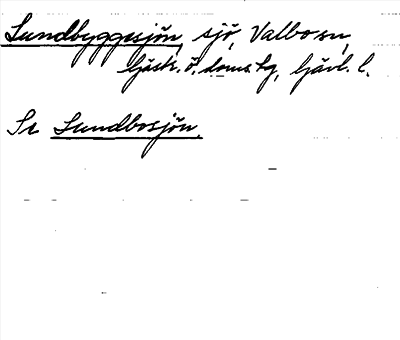 Lundbyggesjön, sjö, Valbo sn,
Gästr. ö. doms.hg, Gävl. l.
Se Lundbosjön.